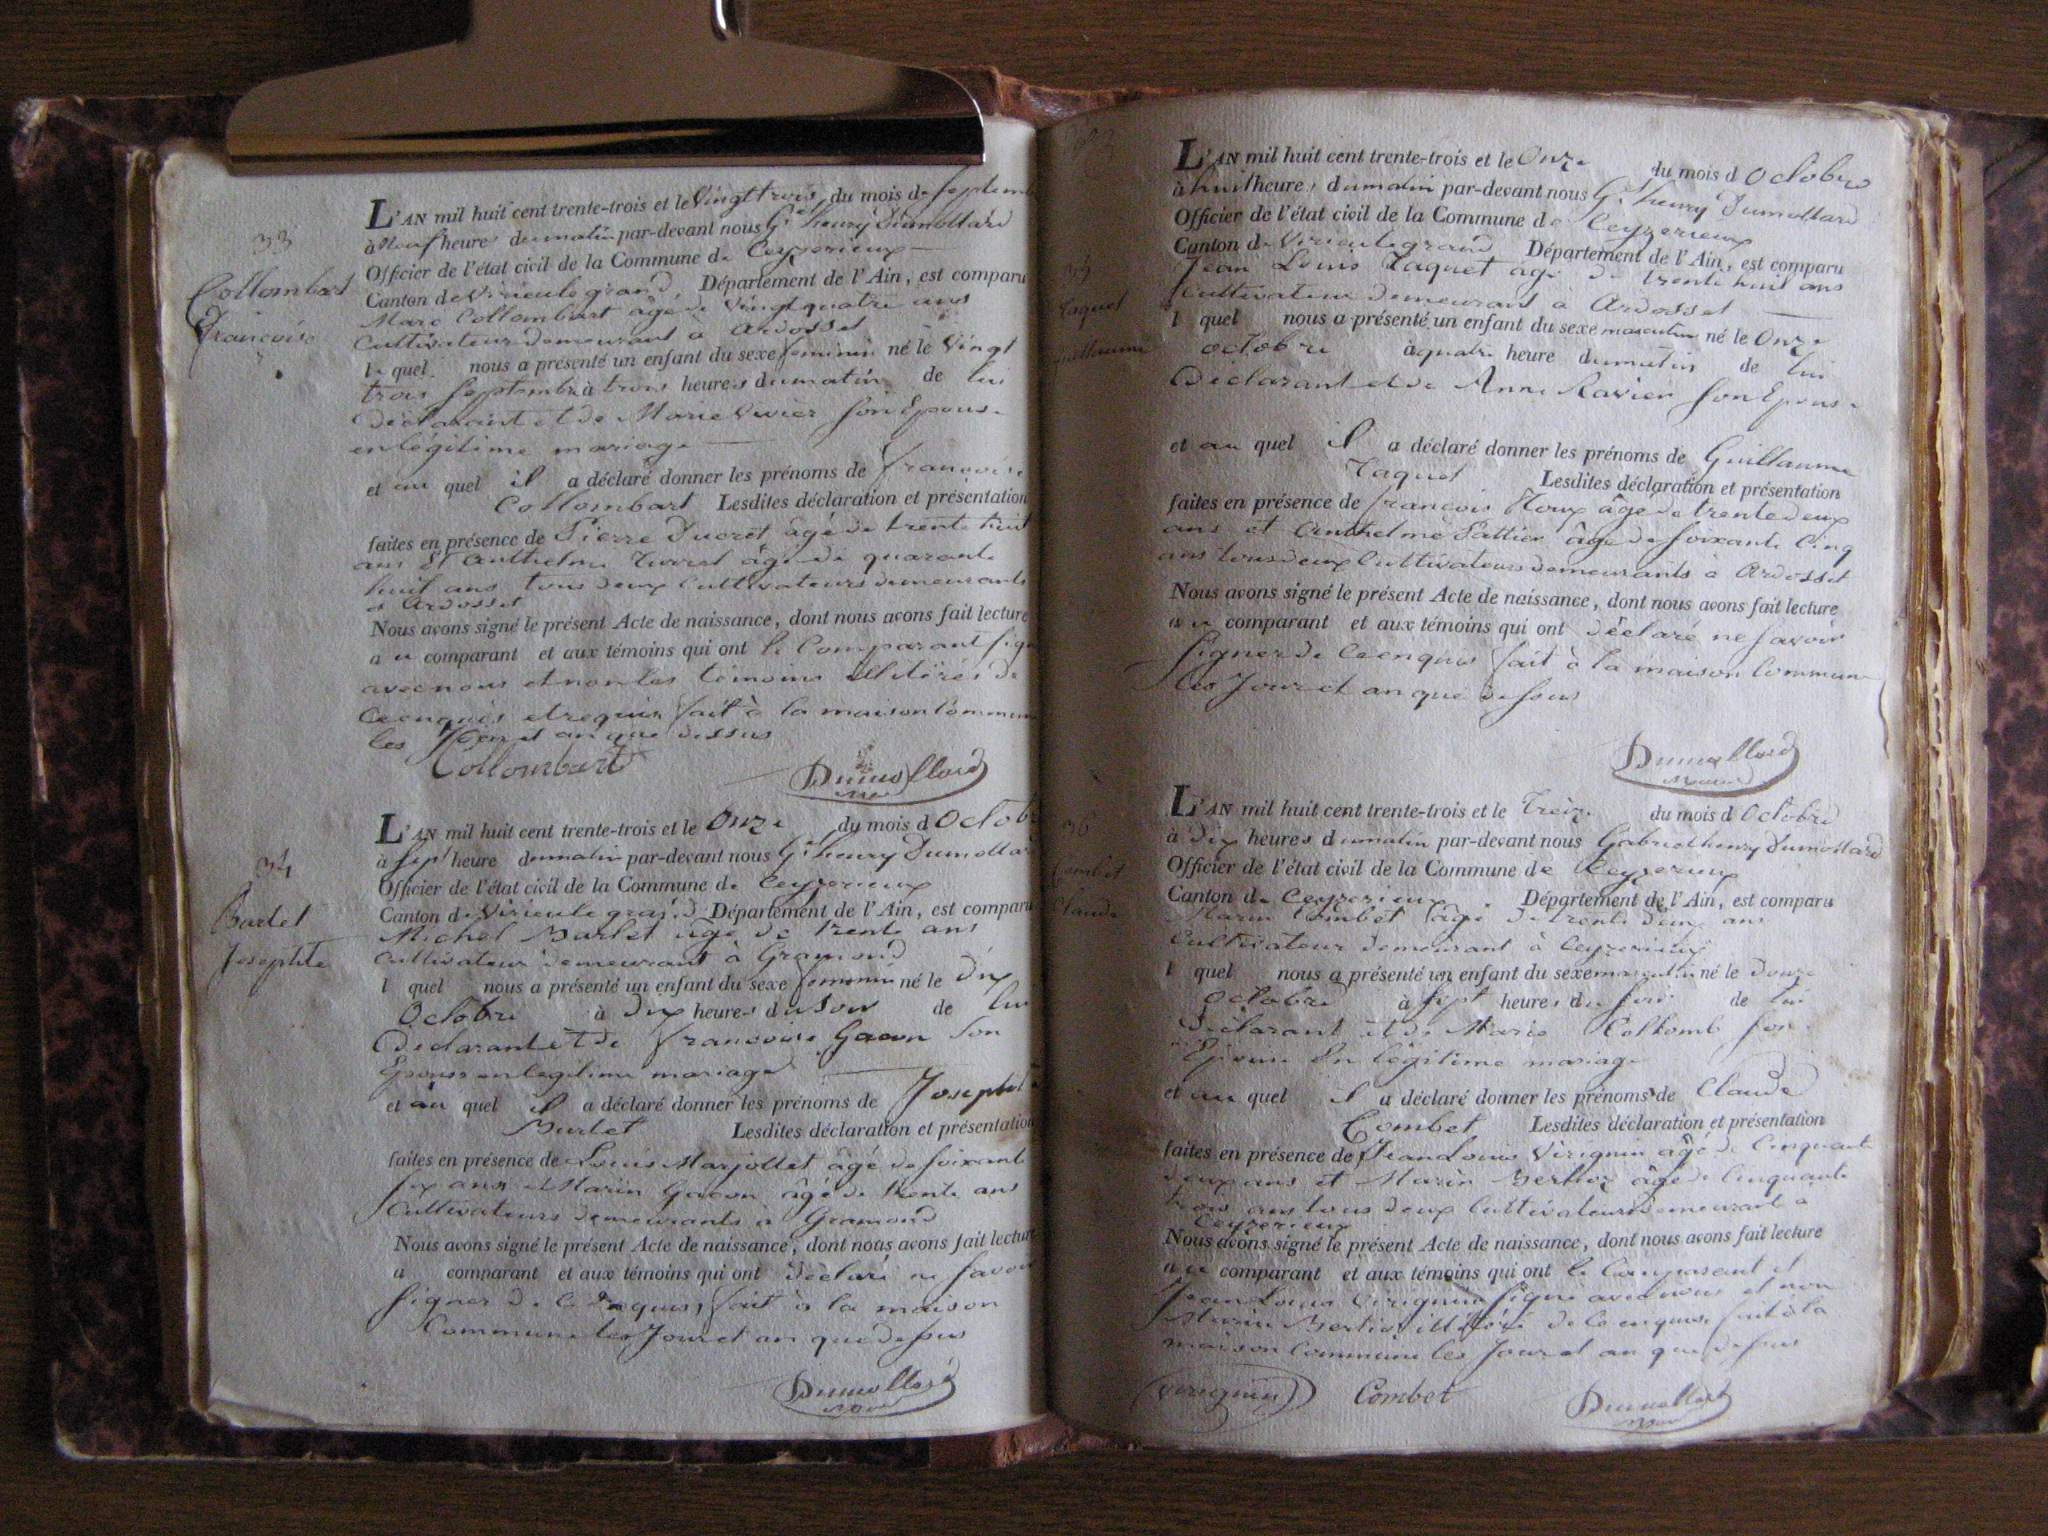 33
Collombart
Françoise
L'AN mil huit cent trente-trois et le Vingt trois du mois de Septemb
à Neuf heures du matin par-devant nous Gl henry Dumollard
Officier de l'état civil de la Commune de Ceyzerieux
Canton de Virieu le grand, Département de l'Ain, est comparu
Marc Collombart âgé de Vingt quatre ans
Cultivateur demeurant à Ardosset
le quel nous a présenté un enfant du sexe feminin né le Vingt
trois Septembre à trois heures du matin de lui
Déclarant et de Marie Vivier son Epouse
en légitime mariage
et au quel il a déclaré donner les prénoms de françoise
Collombart Lesdites déclaration et présentation
faites en présence de Pierre Ducret âgé de trente huit
ans Et Anthelme âgé de quarante
huit ans tous deux Cultivateurs demeurants
à Ardosset
Nous avons signé le présent Acte de naissance, dont nous avons fait lecture
au comparant et aux témoins qui ont le Comparant signé
avec nous et non les témoins illitérés de
ce enquis et requis fait à la maison Commune
les Jour et an que dessus
Collombart
Dumollard
34
Burlet
Josephte
L'AN mil huit cent trente-trois et le Onze du mois d Octob
à Sept heure du matin par-devant nous Gl henry Dumollard
Officier de l'état civil de la Commune de Ceyzerieux
Canton de Virieu le grand Département de l'Ain, est comparu
Michel Burlet âgé de trente ans
Cultivateur demeurant à Gramond
l quel nous a présenté un enfant du sexe feminin né le Dix
Octobre à Dix heures du Soir de lui
Déclarant et de françoise Gacon Son
Epouse en legitime mariage
et au quel il a déclaré donner les prénoms de Josephte
Burlet Lesdites déclaration et présentation
faites en présence de Louis Marjollet âgé de soixante
six ans et Marin Gacon âgé de trente ans
Cultivateurs demeurants à Gramond
Nous avons signé le présent Acte de naissance, dont nous avons fait lecture
a comparant et aux témoins qui ont déclaré ne savoir
signer de ce enquis, fait à la maison
Commune les Jour et an que dessus
Dumollard
35
Taquet
Guillaume
L'AN mil huit cent trente-trois et le Onze du mois d Octobre
à huit heures du matin par-devant nous Gl henry Dumollard
Officier de l'état civil de la Commune de Ceyzerieux
Canton de Virieu le grand Département de l'Ain, est comparu
Jean Louis Taquet âgé de trente huit ans
Cultivateur demeurant à Ardosset
l quel nous a présenté un enfant du sexe masculin né le Onze
octobre à quatre heure du matin de lui
Déclarant et de Anne Ravier son Epouse
et au quel il a déclaré donner les prénoms de Guillaume
Taquet Lesdites déclaration et présentation
faites en présence de françois Roux âgé de trente deux
ans et Anthelme Pattier âgé de soixante Cinq
ans tous deux Cultivateurs demeurants à Ardosset
Nous avons signé le présent Acte de naissance, dont nous avons fait lecture
au comparant et aux témoins qui ont déclaré ne savoir
signer de ce enquis fait à la maison Commune
les Jour et an que dessus
Dumollard
36
Combet
Claude
L'AN mil huit cent trente-trois et le Treize du mois d Octobre
à Dix heures du matin par-devant nous Gabriel henry Dumollard
Officier de l'état civil de la Commune de Ceyzerieux
Canton de Ceyzerieux. Département de l'Ain, est comparu
Marin Combet âgé de trente deux ans
Cultivateur demeurant à Ceyzerieux
l quel nous a présenté un enfant du sexe masculin né le Douze
Octobre à Sept heures du soir de lui
Déclarant et de Marie Collomb son
Epouse En légitime mariage
et au quel il a déclaré donner les prénoms de Claude
Combet Lesdites déclaration et présentation
faites en présence de Jean Louis Virignin âgé de Cinquante
deux ans et Marin Bertier âgé de Cinquante
trois ans tous deux Cultivateurs demeurant à
Ceyzerieux
Nous avons signé le présent Acte de naissance, dont nous avons fait lecture
au comparant et aux témoins qui ont le Comparant et
Jean Louis Virignin signé avec nous et non
Marin Bertier illitéré de ce enquis fait à la
maison Commune les Jour et an que dessus
Virignin Combet Dumollard